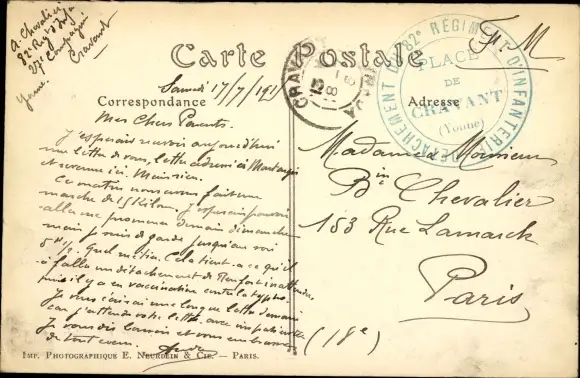 A. Chevalier
82e Reg
27e Compagnie
Cravant
Yonne.
Fr M
Carte Postale
DÉTACHEMENT DU 82e RÉGIMENT D'INFANTERIE
PLACE
DE
CRAVANT
(Yonne)
CRAVANT
Correspondance
Adresse
Samedi 17/7/1915
Mes Chers Parents.
J'espérais recevoir aujourd'hui
une lettre de vous, lettre adressée à Montargis
et revenue ici. Mais rien.
Ce matin nous avons fait une
marche de 15 Kilom. J'espérais pouvoir
aller me promener demain dimanche
mais je suis de garde jusqu'au soir
5h 1/2. Quel métier. Cela tient à ce qu'il
a fallu un détachement de Renfort inattendu,
puis il y a eu vaccination contre la typho.
Je vous écrirai une longue lettre demain
car j'attends votre lettre avec impatience
Je vous dis bonsoir et vous embrasse
de tout cœur.
Madame Monsieur
Bin Chevalier
153 Rue Lamarck
Paris
(18e)
IMP. PHOTOGRAPHIQUE E. NEURDEIN & CIE. — PARIS.